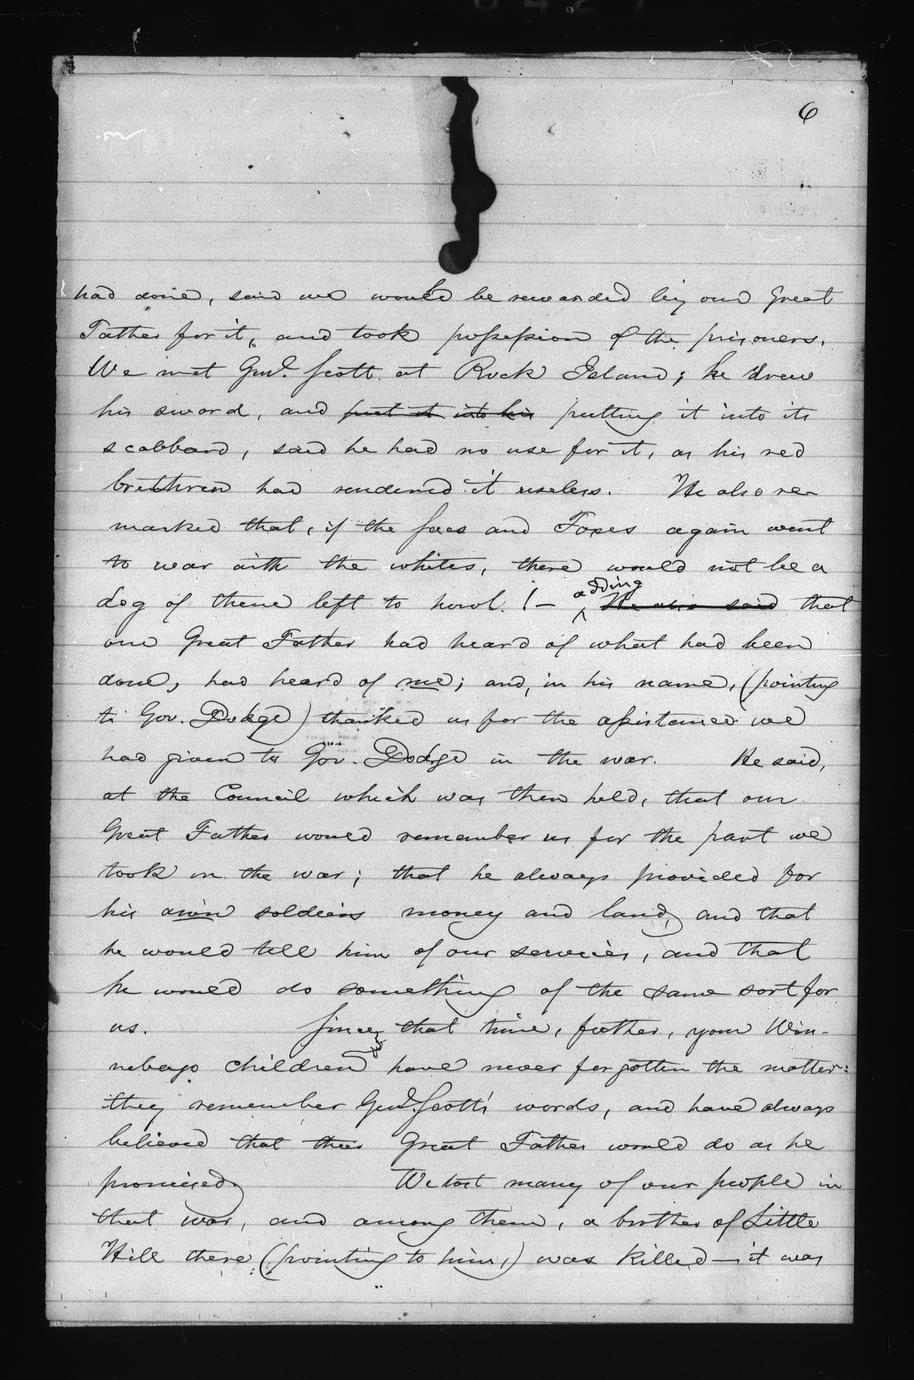 6
had done, said we would be rewarded by our Great
Father for it, and took possession of the prisoners.
We met Genl. Scott at Rock Island; he drew
his sword, and put it into his putting it into its
scabbard, said he had no use for it, as his red
brethren had rendered it useless. He also re-
marked that, if the Sacs and Foxes again went
to war with the whites, there would not be a
dog of them left to howl! — adding He also said that
our Great Father had heard of what had been
done, had heard of me; and, in his name, (pointing
to Gov. Dodge) thanked us for the assistance we
had given to Gov. Dodge in the war. He said,
at the Council which was then held, that our
Great Father would remember us for the part we
took in the war; that he always provided for
his own soldiers money and land, and that
he would tell him of our services, and that
he would do something of the same sort for
us. Since that time, father, your Win-
nebago children have never forgotten the matter:
they remember Genl. Scott's words, and have always
believed that their Great Father would do as he
promised. We lost many of our people in
that war, and among them, a brother of Little
Hill there (pointing to him,) was killed — it was